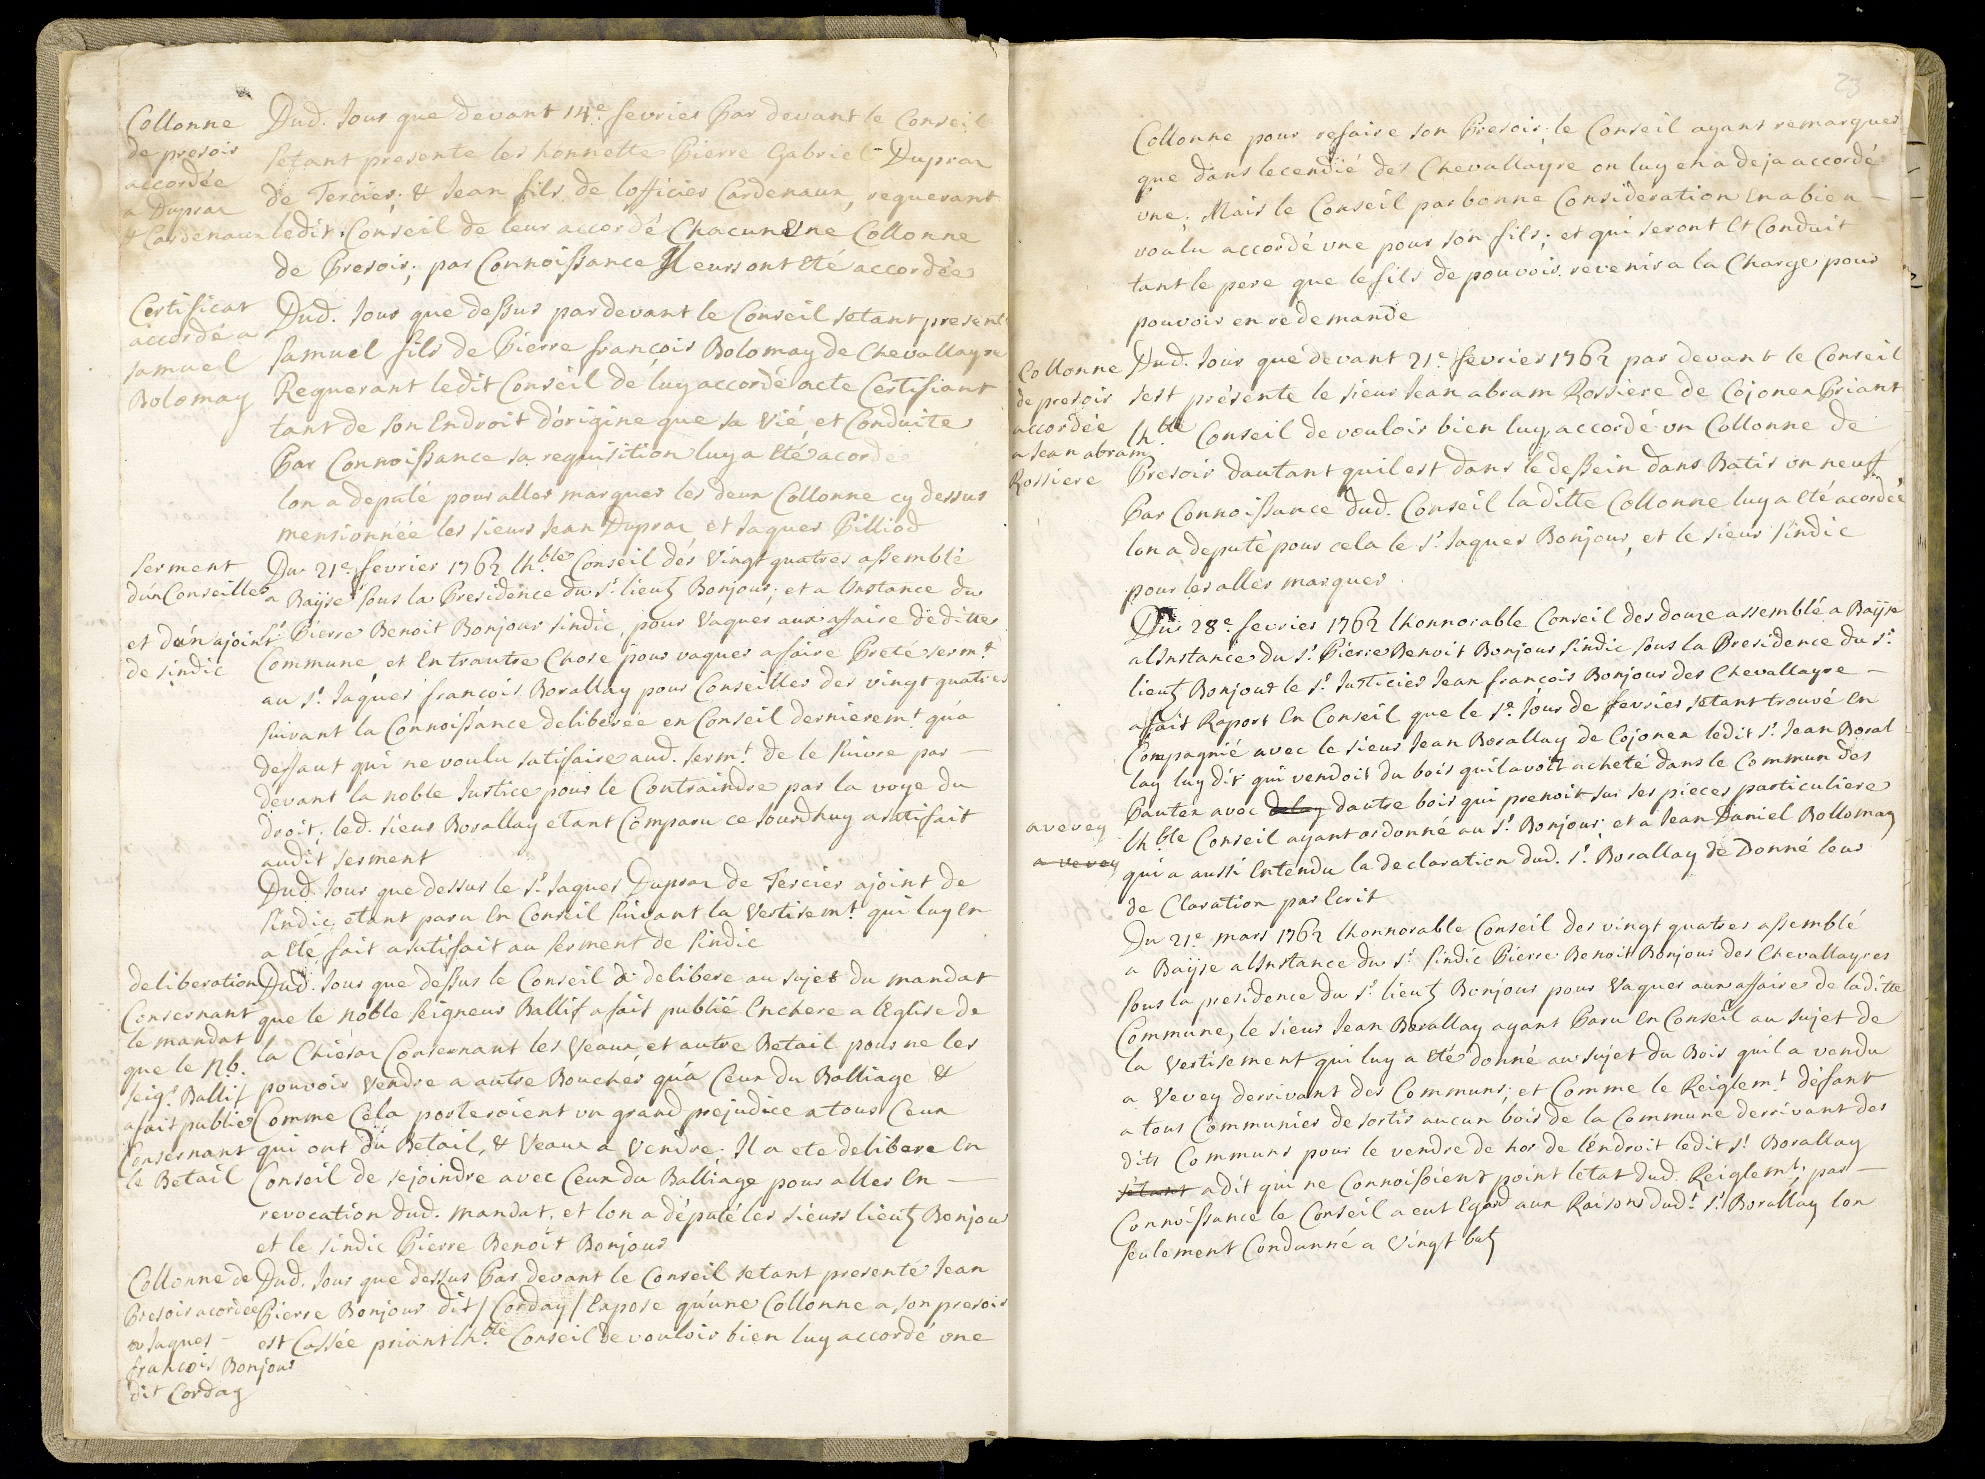 Collonne
de presoir
accordée
a Dupraz
& Cardenaux
Dud. Jour que devant 14e. fevrier Par devant le Conseil
setant presente les honnette Pierre Gabriel Dupraz
de Tercier, & Jean fils de lofficier Cardenaux, requerant
ledit Conseil de leur accordé Chacun Une Collonne
de Presoir; par Connoissance Il leurs ont Eté accordée
Certificat
accordé a
samuel
Bolomay
Dud. Jour que dessus par devant le Conseil setant present
samuel fils de Pierre françois Bolomay de Chevallayre
Requerant ledit Conseil de luy accordé acte Certifiant
tant de son Endroit d'origine que sa Vié et Conduite
Par Connoissance sa requisition luy a Eté acordé
lon a deputé pour aller marquer les deux Collonne cy dessus
mensionnéé les sieurs Jean Dupraz et Jaques Pilliod
serment
d'un Conseiller
et d'un ajoint
de sindic
Du 21e. fevrier 1762 lh.ble Conseil des Vingt quatres assemblé
a Baÿse sous la Presidence du sr. lieut Bonjour; et a linstance du
sr. Pierre Benoit Bonjour sindic, pour Vaquer aux affaire de ditte
Commune et Entrautre Chose pour vaquer a faire Preté sermt.
au sr. Jaques françois Borallay pour Conseiller des vingt quatres
suivant la Connoissance deliberée en Conseil dernieremt. qu'a
deffaut qui ne voulu satisfaire aud. sermt. de le suivre par
devant la noble Justice pour le Contraindre par la voye du
droit, led. sieur Borallay etant Comparu ce Jourdhuy a satisfait
audit serment
Dud. Jour que dessus le sr. Jaques Dupraz de Tercier ajoint de
sindic etant paru En Conseil suivant la Vertisemt. qui luy En
a Eté fait a satisfait au serment de sindic
deliberation
Consernant
le mandat
que le Nb.
seigr. Ballif
a fait publié
Consernant
le Betail
Dud. Jour que dessus le Conseil a delibere au sujet du mandat
que le noble seigneur Ballif a fait publié Enchere a lEglise de
la Chiésaz Consernant les Veaux et autre Betail pour ne les
pouvoir Vendre a autre Boucher qu'a Ceux du Balliage &
Comme Cela porteroient un grand prejudice a tous Ceux
qui ont du Betail, & Veaux a Vendre. Il a ete delibere En
Conseil de sejoindre avec Ceux du Balliage pour aller En
revocation dud. mandat, et lon a députéles sieurs lieut Bonjour
et le sindic Pierre Benoit Bonjour
Collonne de
Presoir acordée
a Jaques
françois Bonjour
dit Corday
Dud. Jour que dessus Par devant le Conseil setant presenté Jean
Pierre Bonjour dit / Corday / Expose qu'une Collonne a son presoir
est Cassée priant lh.ble Conseil de vouloir bien luy accordé une
23
Collonne pour refaire son Presoir; le Conseil ayant remarquer
que dans lecendié des Chevallayre on luy en a deja accordé
une; Mais le Conseil par bonne Consideration En a bien
voulu accordé une pour son fils; et qui seront Et Conduit
tant le pere que le fils de pouvoir revenir a la Charge pour
pouvoir en redemande
Collonne
de presoir
accordée
a Jean abram
Rossiere
Dud. Jour que devant 21e. fevrier 1762 par devant le Conseil
s'est présente le sieur Jean abram Rossiere de Cojonex Priant
lh.ble Conseil de vouloir bien luy accordé un Collonne de
Presoir dautant quil est dans le dessein dans Batir un neuf
Par Connoissance dud. Conseil laditte Collonne luy a Eté acordée
lon a deputé pour cela le sr. Jaques Bonjour, et le sieur sindic
pour les aller marquer
Du 28e. fevrier 1762 lhonnorable Conseil des douze assemblé a Baÿse
alinstance du sr. Pierre Benoit Bonjour sindic sous la Presidence du sr.
lieut Bonjour le sr. Justicier Jean françois Bonjour des Chevallayre
a fait Raport En Conseil que le 1e. Jour de fevrier setant trouvé En
Compagnié avec le sieur Jean Borallay de Cojonex ledit sr. Jean Boral
lay luy dit qui vendoit du bois quil avoit acheté dans le Commun des
Pautex avec delay dautre bois qui prenoit sur ses pieces particuliere
a vevey
a vevey
lh.ble Conseil ayant ordonné au sr. Bonjour; et a Jean Daniel Bollomay
qui a aussi Entendu la declaration dud. sr. Borallay de Donné leur
de Claration par Ecrit
Du 21e. mars 1762 lhonnorable Conseil des vingt quatres assemblé
a Baÿse alinstance du sr. sindic Pierre Benoit Bonjour des Chevallayres
sous la presidence du sr. lieut Bonjour pour Vaquer aux affaire de laditte
Commune, le sieur Jean Borallay ayant Paru En Conseil au sujet de
la Vertisement qui luy a Eté donné au sujet du Bois quil a vendu
a Vevey derrivant des Communs; et Comme le Reiglemt. déffant
a tous Communier de sortir aucun bois de la Commune derrivant des
dits Communs pour le vendre de hor de lEndroit ledit sr. Borallay
sétant a dit qui ne Connoissient point letat dud. Reiglemt; par
Connoissance le Conseil a eut Egard aux Raisons dudt. sr. Borallay lon
seulement Condanné a Vingt bat